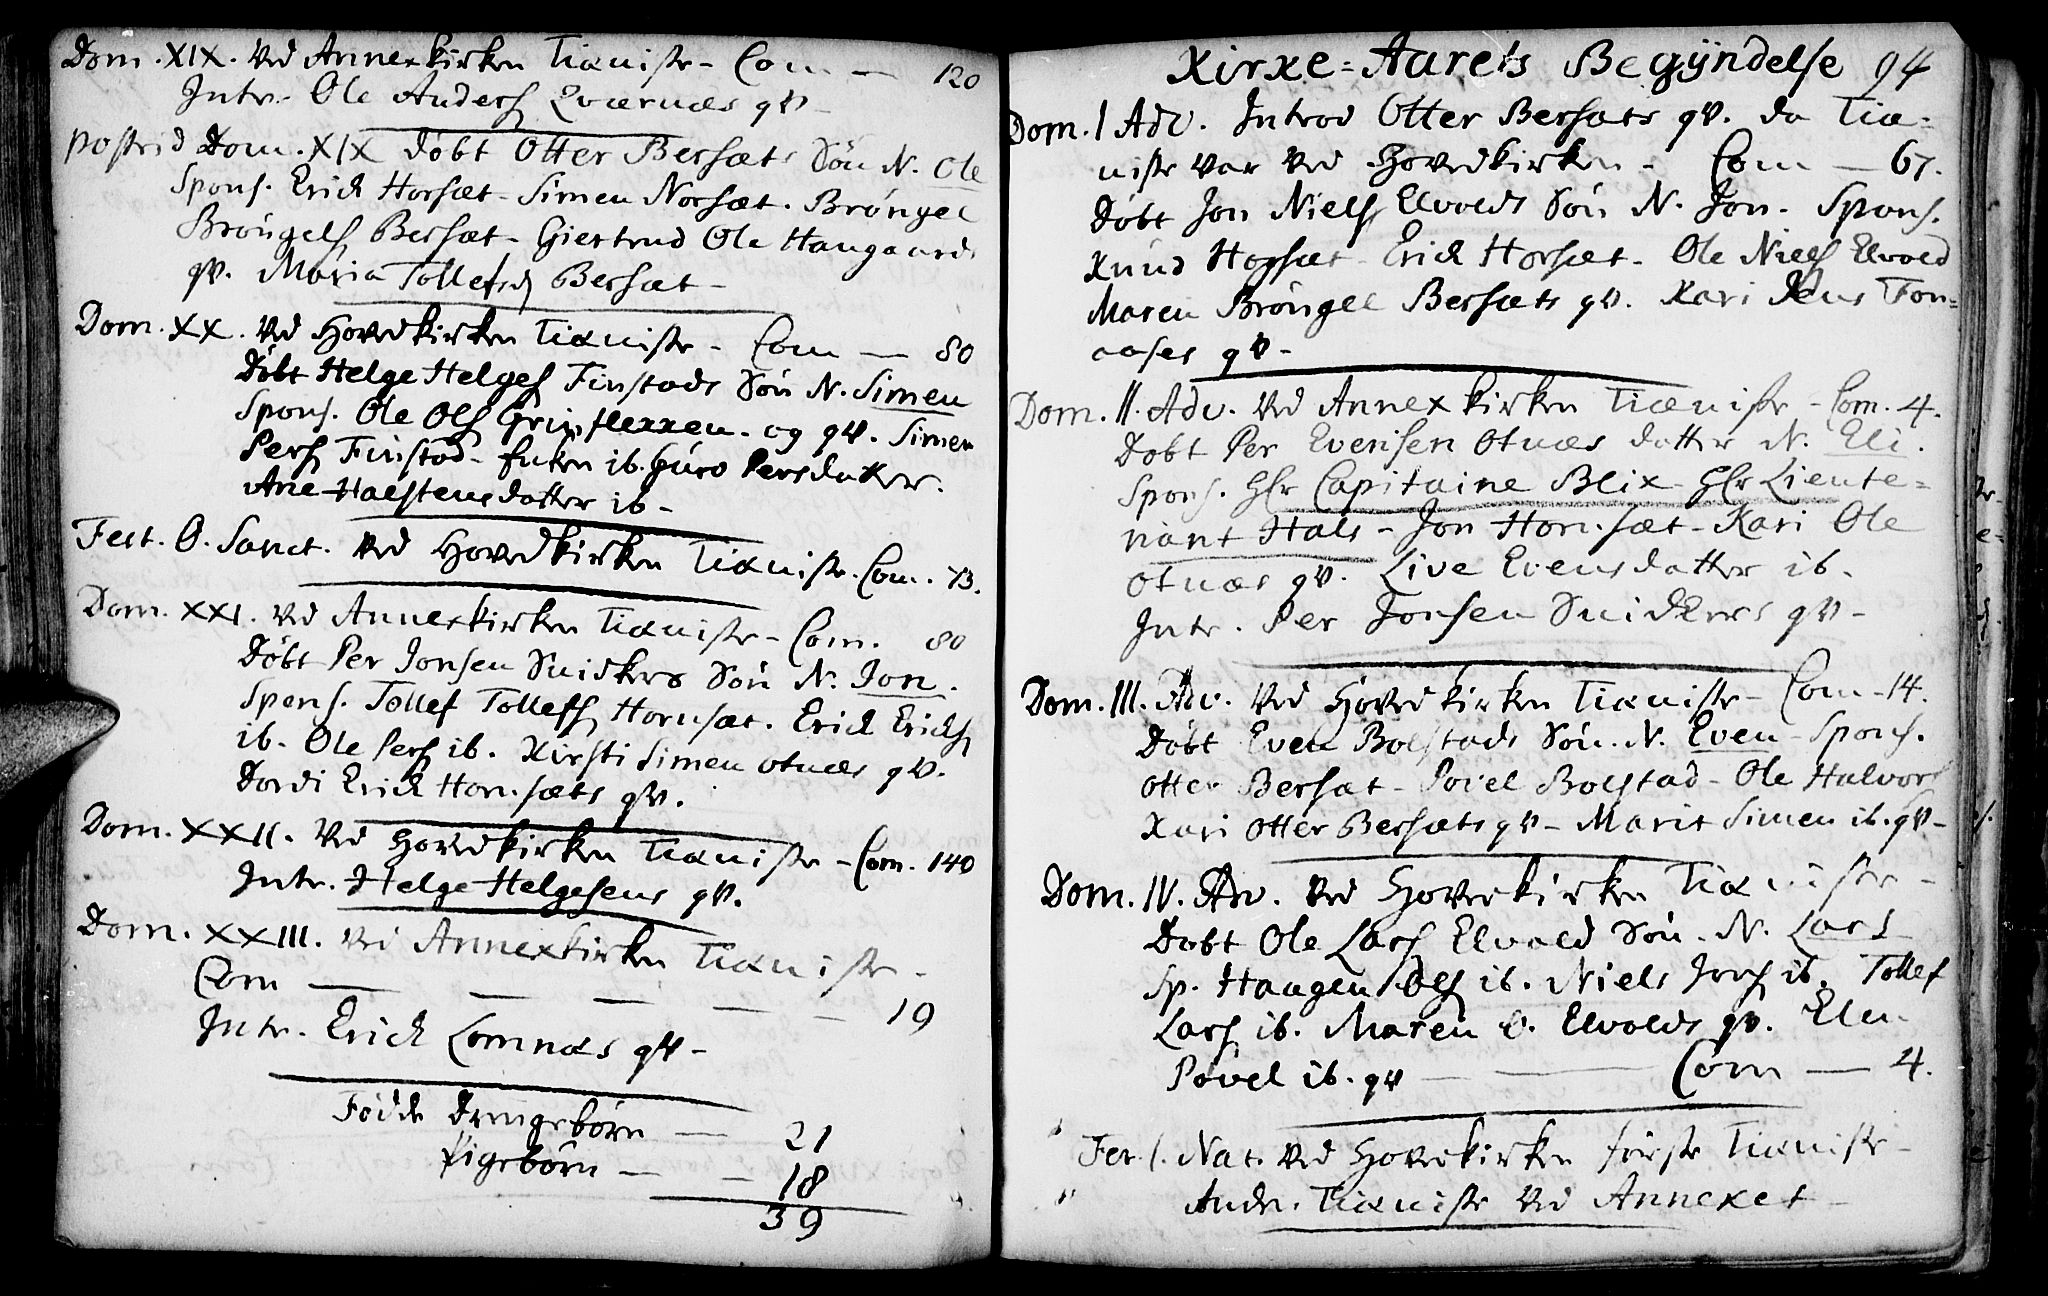 Dom. XIX. Ved Annexkirken Tiæniste - Com — 120
Intr. Ole Anders. Qværnæs qv -
postrid Dom. XIX döbt Otter Bersæts Sön N. Ole
Spons. Erick Horsæt - Simen Norsæt. Bröngel
Bröngels. Bersæt - Giertrud Ole Haugaards
qv. Maria Tollefsd. Bersæt -
Dom. XX. Ved Hovedkirken Tiæniste - Com — 80
Döbt Helge Helges. Finstads Sön N. Simen
Spons. Ole Ols. og qv. Simen
Pers. Finstad - ib. Guro Persdatter.
Ane Halstensdatter ib -
Fest. O. Sanct. Ved Hovedkirken Tiæniste. Com. 73.
Dom. XXI. Ved Annexkirken Tiæniste - Com. 80
Döbt Per Jonsen Snidkers Sön N. Jon.
Spons. Tollef Tollefs. Hornsæt. Erick Ericks.
ib. Ole Pers. ib. Kirsti Simen Otnæs qv.
Dordi Erick Hornsæts qv.
Dom. XXII. Ved Hovedkirken Tiæniste - Com. 140
Intr. Helge Helgesens qv.
Dom. XXIII. Ved Annexkirken Tiæniste -
Com — — — — — 19
Intr. Erick Lomnæs qv -
Födde Drengebörn — 21
Pigebörn — - 18
39
Kirke-Aarets Begÿndelse 94
Dom. I Adv. Introd Otter Bersæts qv. da Tiæ-
niste var Ved Hovedkirken - Com — 67.
Döbt Jon Niels. Elvolds Sön N. Jon - Spons.
Knud Hopsæt - Erick Horsæt - Ole Niels. Elvold
Maren Bröngel Bersæts qv. Kari Jens Fon-
aases qv -
Dom. II. Adv. Ved Annexkirken Tiæniste - Com. 4.
Döbt Per Evensen Otnæs datter N. Eli.
Spons. Hr Capitaine Blix - Hr Lieute-
nant Hals - Jon Hornsæt - Kari Ole
Otnæs qv. Live Evensdatter ib -
Intr. Per Jonsen Snidkers qv -
Dom. III. Adv. Ved Hovedkirken Tiæniste - Com - 14.
Döbt Even Bolstads Sön. N. Even - Spons.
Otter Bersæt - Povel Bolstad - Ole Halvors.
Kari Otter Bersæts qv - Marit Simen ib. qv -
Dom. IV. Adv. Ved Hovedkirken Tiæniste -
Döbt Ole Lars. Elvold Sön - N. Lars
Sp. Haagen Ols. ib. Niels Jons. ib. Tollef
Lars. ib. Maren O. Elvolds qv. Elen
Povel ib. qv — — Com — 4.
Fer. 1. Nat. Ved Hovedkirken förste Tiæniste -
Anden Tiæniste Ved Annexet -